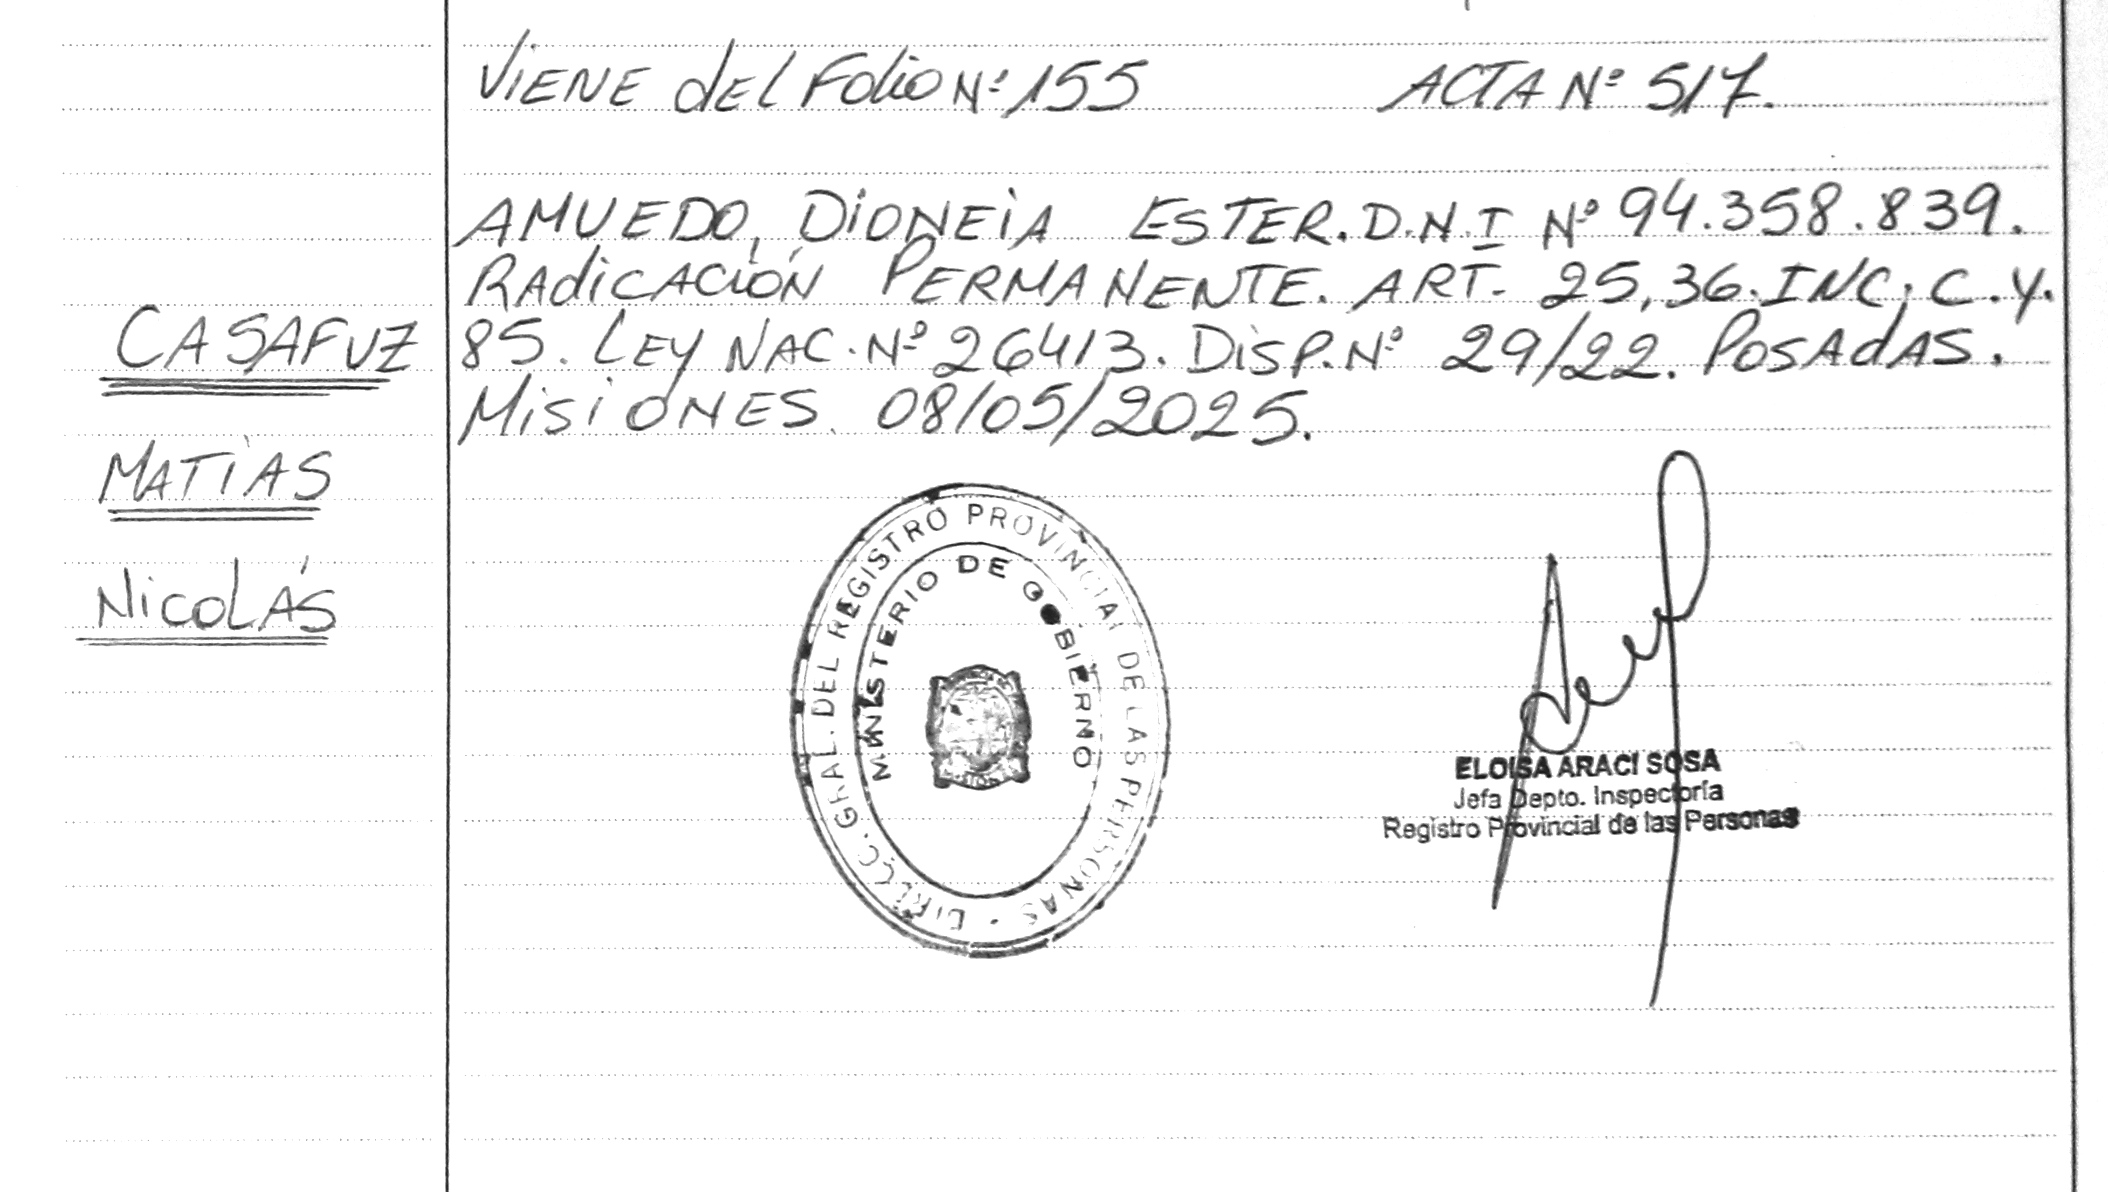 VIENE dEL FOLIO Nº 155 ACTA Nº 517.
AMUEDO, DIONEIA ESTER. D.N.I Nº 94.358.839.
RADICACIÓN PERMANENTE. ART. 25, 36. INC. C. Y.
85. LEY NAC. Nº 26413. DISP. Nº 29/22. POSADAS.
MISIONES. 08/05/2025.
CASAFUZ
MATÍAS
NICOLÁS
DIREC. GRAL. DEL REGISTRO PROVINCIAL DE LAS PERSONAS
MINISTERIO DE GOBIERNO
ELOISA ARACI SOSA
Jefa Depto. Inspectoría
Registro Provincial de las Personas